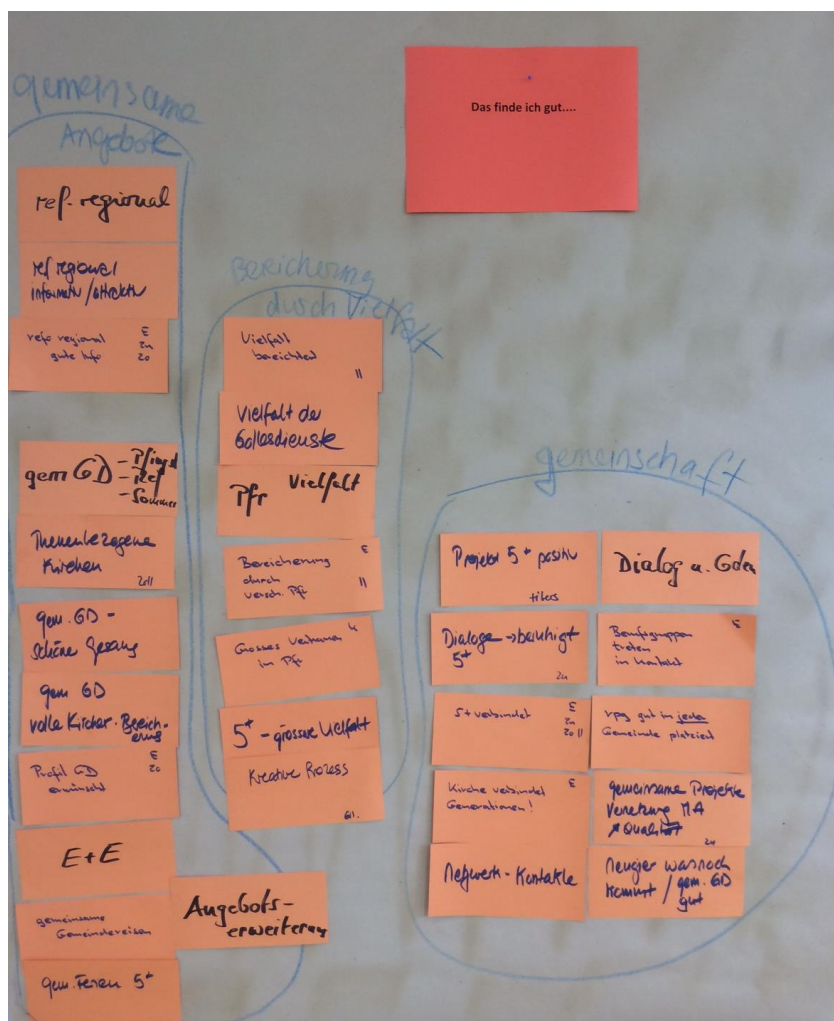 Das finde ich gut....
gemeinsame
Angebote
ref. regional
ref regional
informativ / attraktiv
refo regional
gute Info
E
zu
zo
gem GD - Pfingst
- Ref
- Sommer
Themenbezogene
Kirchen
gem. GD -
schöne Gesang
gem GD
volle Kirche - Bereich-
erung
Profil GD
erwünscht
E
zo
E+E
gemeinsame
Gemeindereisen
gem. Ferien 5+
Angebots-
erweiterung
Bereicherung
durch Vielfalt
Vielfalt
bereichert
II
Vielfalt der
Gottesdienste
Pfr Vielfalt
Bereicherung
durch
versch. Pfr
E
II
Grosses Vertrauen
in Pfr
5+ - grosse Vielfalt
Kreative Prozess
gemeinschaft
Projekt 5+ positiv
Dialog u. Gden
Dialoge → beruhigt
5+
zu
Berufsgruppen
treten
in Kontakt
E
5+ verbindet
E
zu
zo II
rpg gut in jeder
Gemeinde platziert
Kirche verbindet
Generationen!
E
gemeinsame Projekte
Vernetzung MA
Qualität
zu
Netzwerk - Kontakte
Neugier was noch
kommt / gem. GD
gut